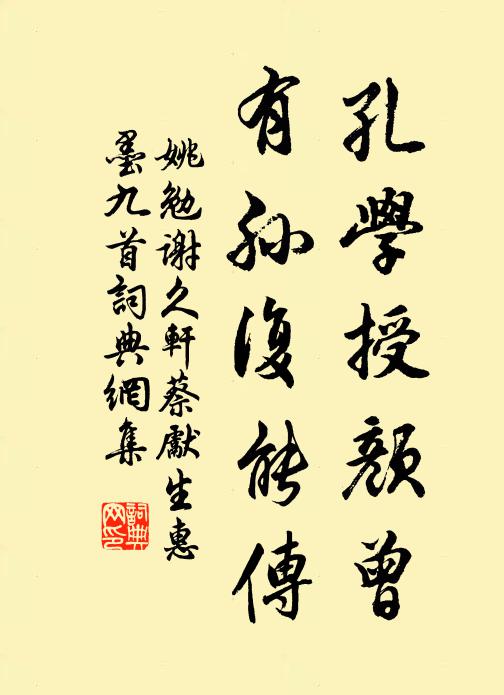 孔學授顏曾
有孫復能傳
姚勉謝久軒蔡獻生惠
墨九首詞典網集
詞典网印